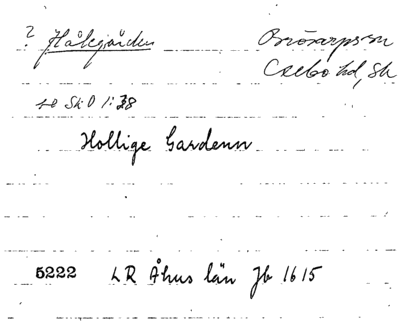 ? Hålegården Brösarps sn
Albo hd, Sk
se SkO 1:38
Hollige Gardenn
5222 LR Åhus län Jb 1615